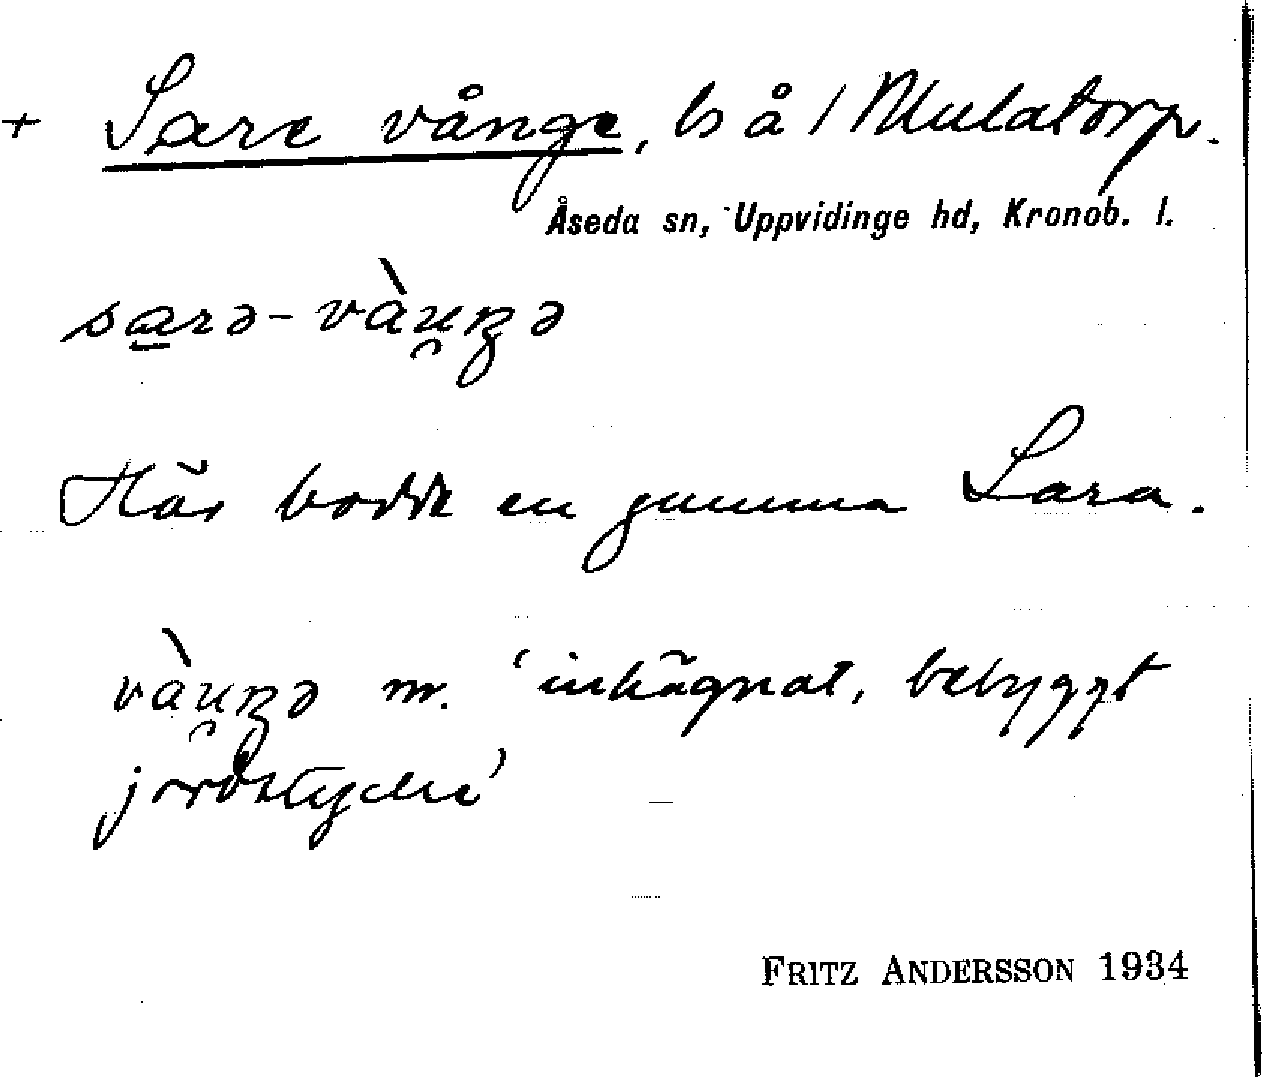 + Sare vånge, ls å / Mulatorp.
Åseda sn, Uppvidinge hd, Kronob. l.
sarə-vàu̯ŋə
Här bodde en gumma Sara.
vàu̯ŋə m. 'inhägnat, bebyggt
jordstycke'
FRITZ ANDERSSON 1934